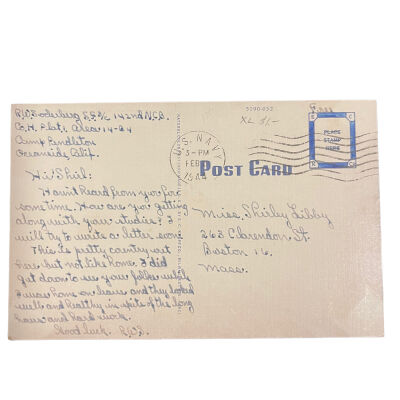 R.W. Soderberg S.F.3/c 142nd N.C.B.
Co. H. Plat 1 Area 14-24
Camp Pendleton
Oceanside Calif.
Hi! Shirl:
Havint heard from you for
some time. How are you getting
along with your studies? I
will try to write a letter soon.
This is pretty country out
here but not like home. I did
get down to see your folks while
I was home on leave and they looked
well and healthy in spite of the long
hours and hard work.
Good luck. R.W.S.
5790-052
XL 5/-
Free
U.S. NAVY
5-PM
FEB
194
PLACE
STAMP
HERE
POST CARD
Miss. Shirley Libby
263 Clarendon St.
Boston 16.
Mass.